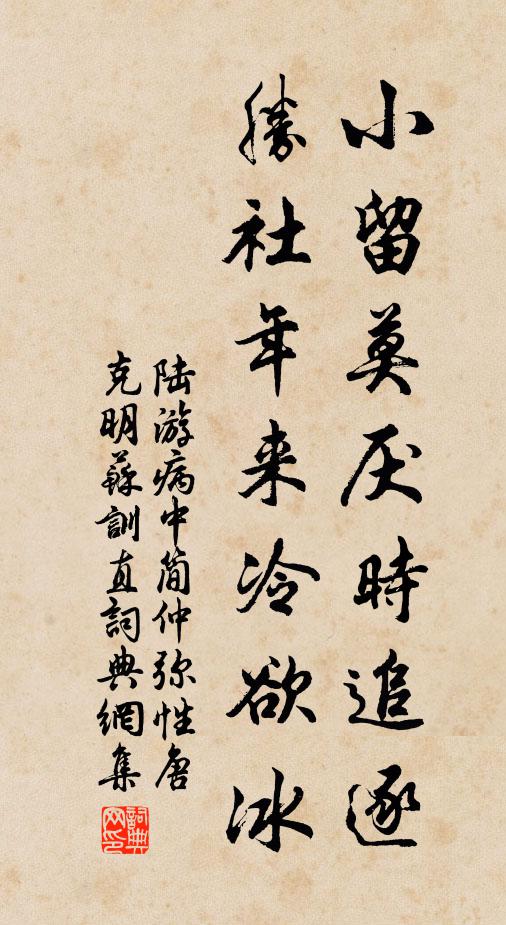 小留莫厌時追逐
勝社年来冷欲冰
陆游病中简仲弥性唐
克明蘇訓直詞典網集
詞典网印